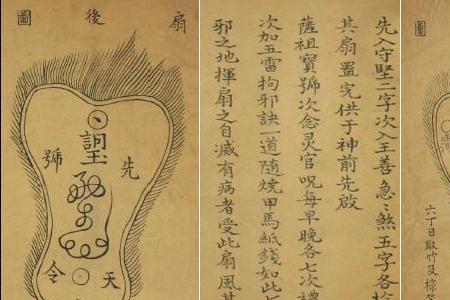 圖
六丁日取竹及棕
先入守堅二字次入王善急〻煞五字各
其扇置完供于神前先啟
薩祖寶號次念灵官呪每早晚各七次禮
次加五雷拘邪訣一道随燒甲馬紙錢如此
邪之地揮扇之自滅有病者受此扇風其
扇後圖
先號
天令